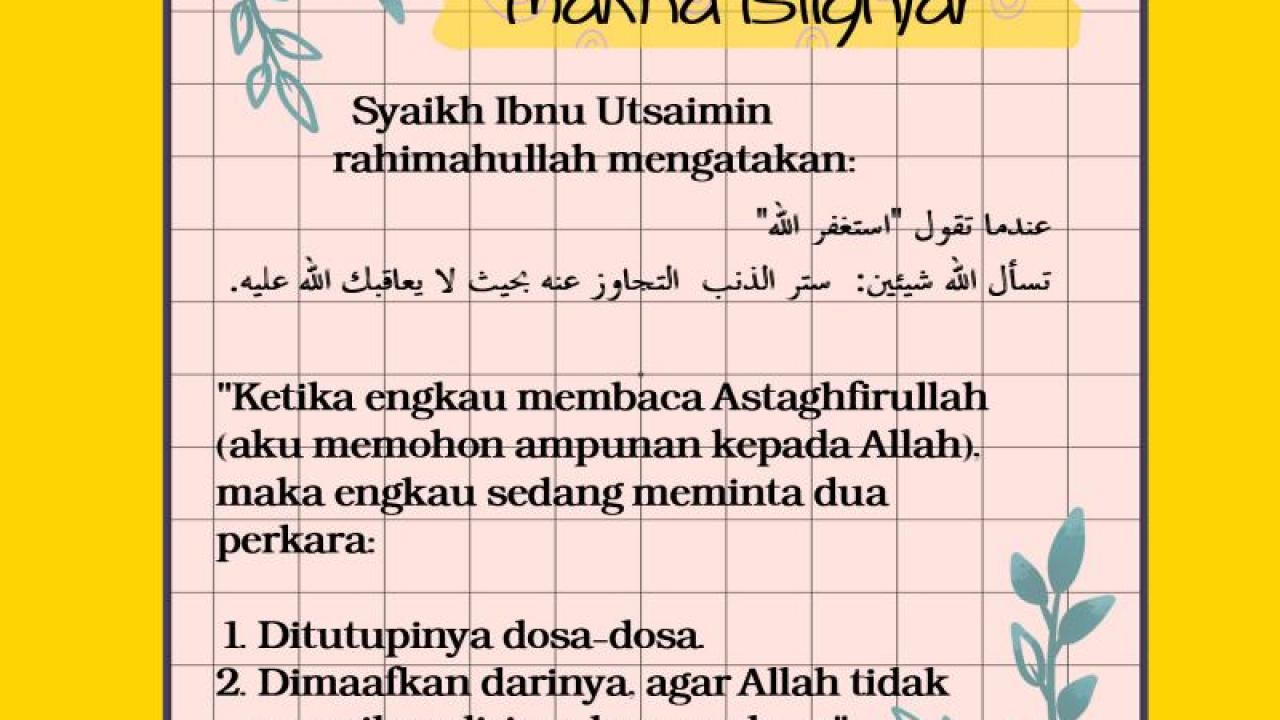 makna istighfar
Syaikh Ibnu Utsaimin
rahimahullah mengatakan:
عندما تقول "استغفر الله"
تسأل الله شيئين: ستر الذنب التجاوز عنه بحيث لا يعاقبك الله عليه.
"Ketika engkau membaca Astaghfirullah
(aku memohon ampunan kepada Allah),
maka engkau sedang meminta dua
perkara:
1. Ditutupinya dosa-dosa.
2. Dimaafkan darinya, agar Allah tidak